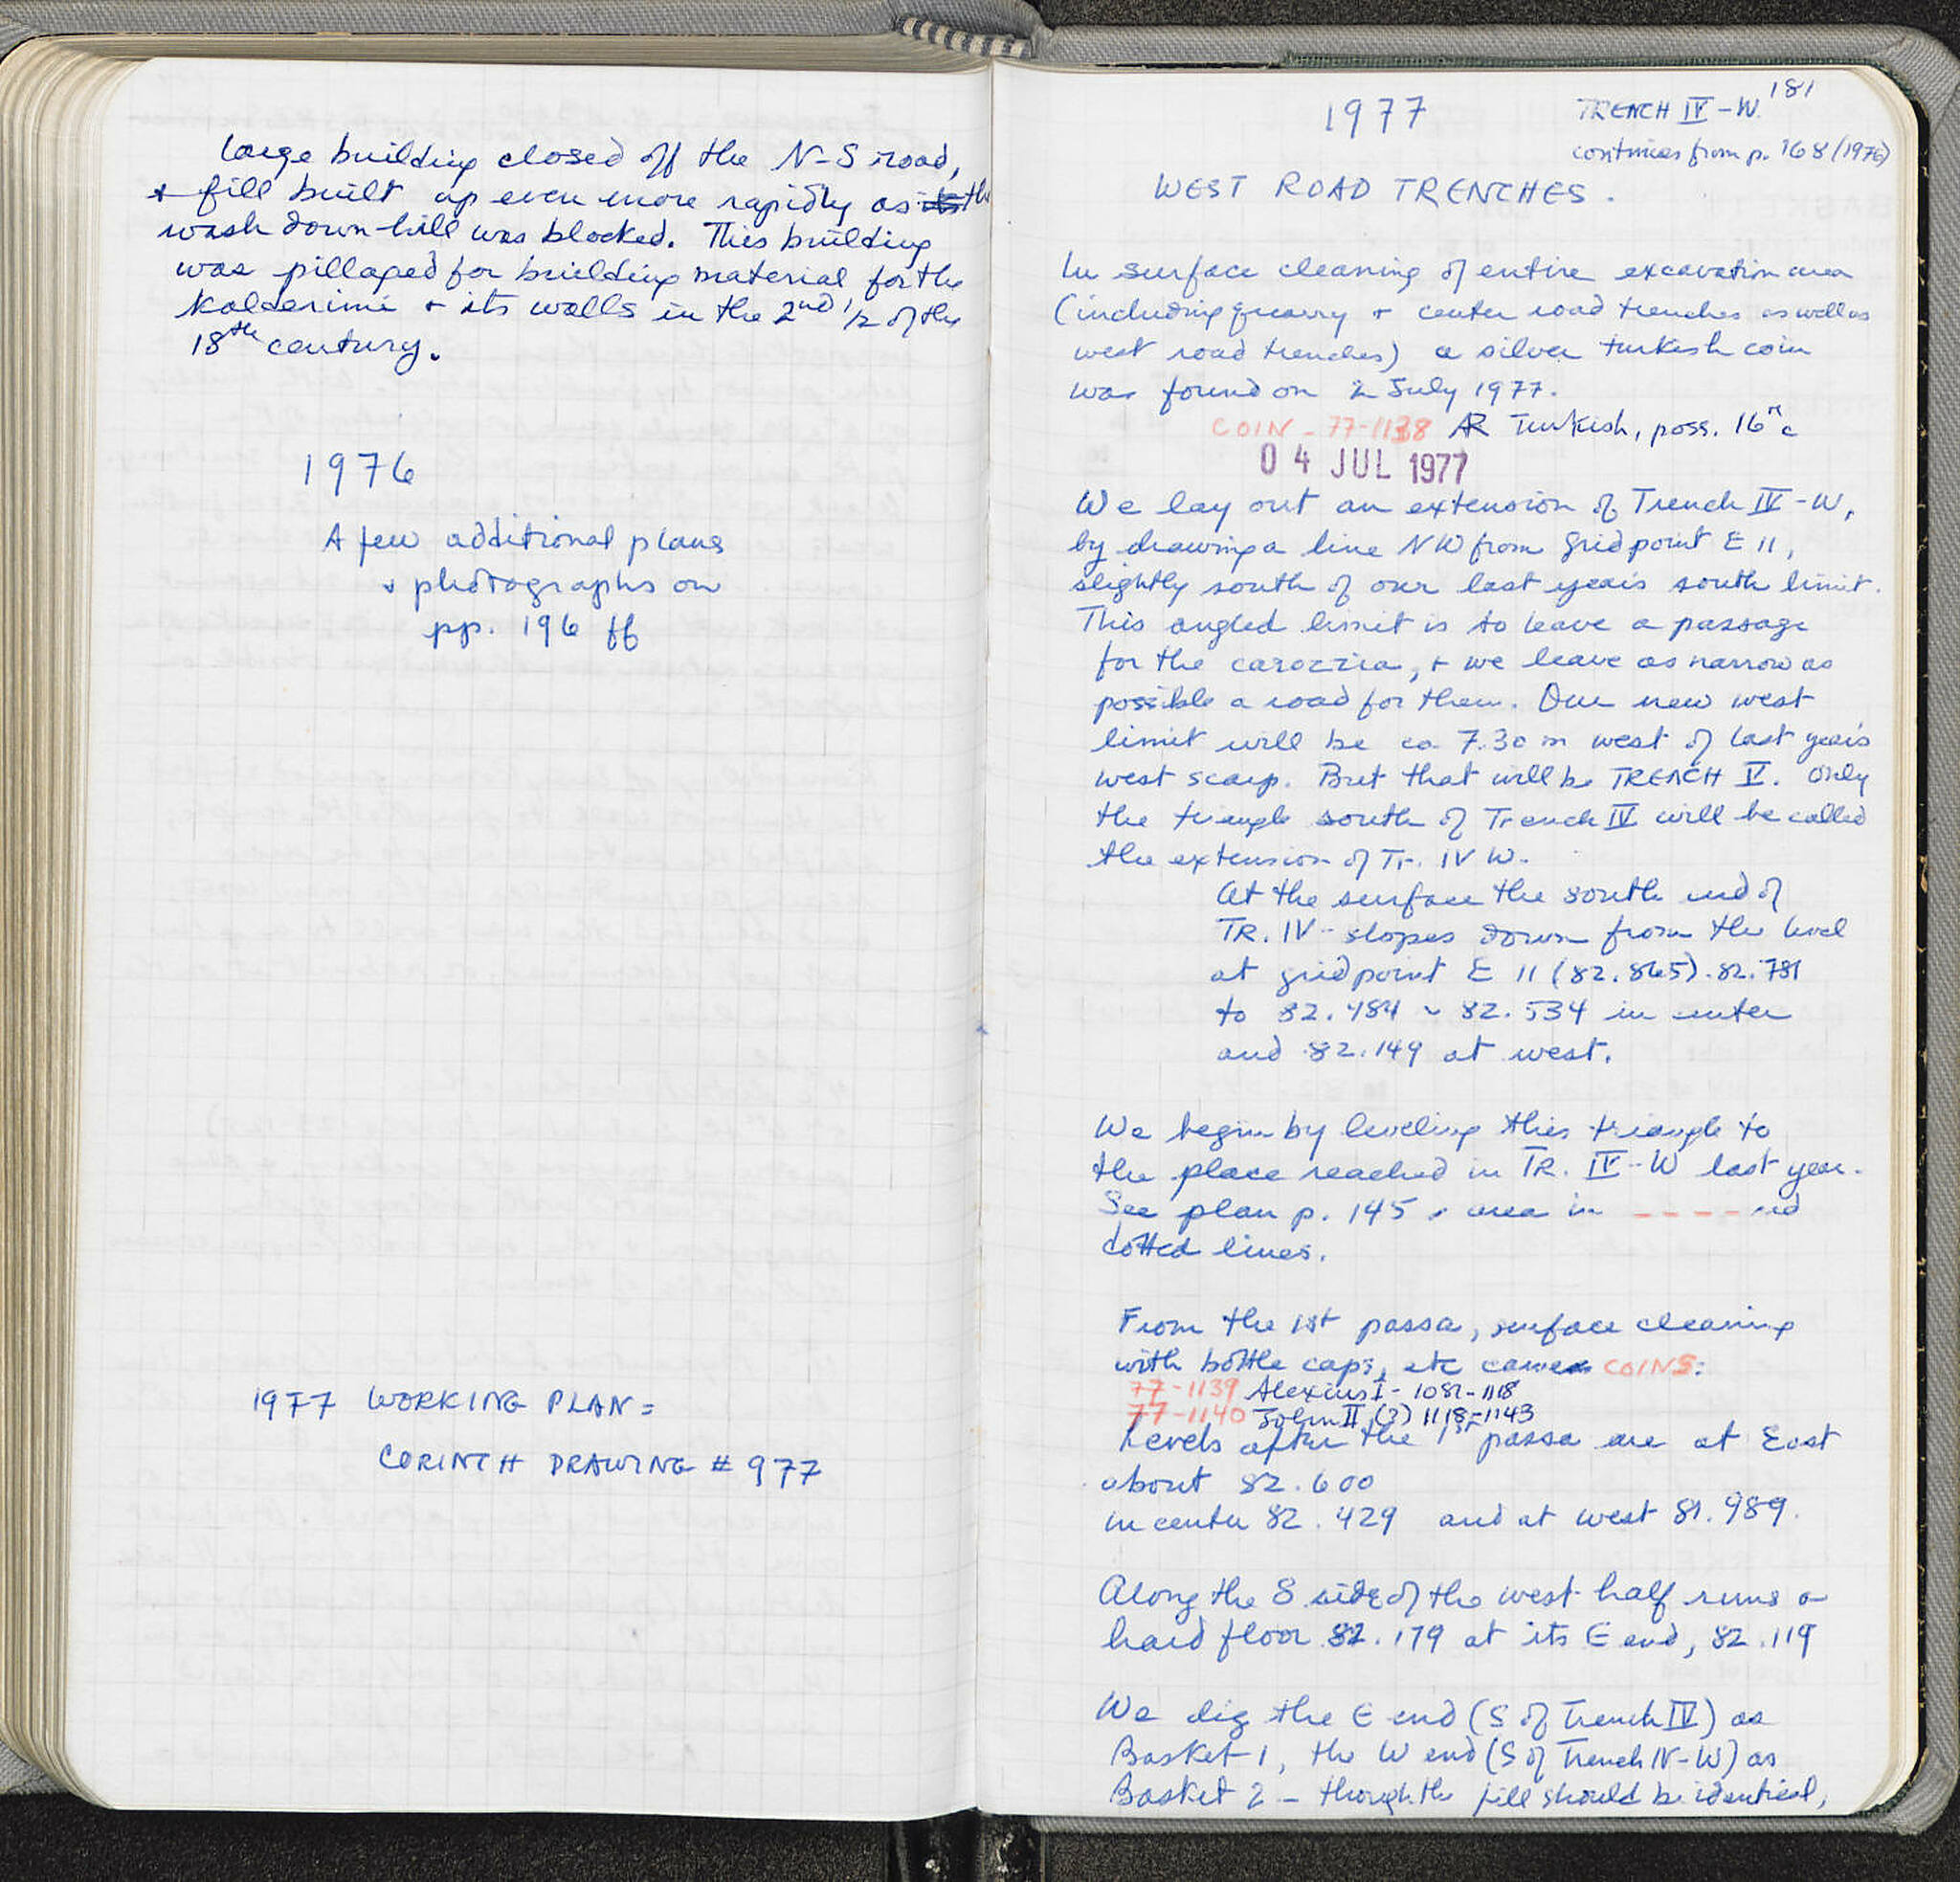 large building closed off the N-S road,
+ fill built up even more rapidly as the
wash down-hill was blocked. This building
was pillaged for building material for the
Kalderimi + its walls in the 2nd 1/2 of the
18th century.
1976
A few additional plans
+ photographs on
pp. 196 ff
1977 WORKING PLAN =
CORINTH DRAWING # 977
181
1977
TRENCH IV - W
continues from p. 168 (1976)
WEST ROAD TRENCHES.
In surface cleaning of entire excavation area
(including quarry + center road trenches as well as
west road trenches) a silver turkish coin
was found on 2 July 1977.
COIN - 77-1138 AR Turkish, poss. 16th c
04 JUL 1977
We lay out an extension of Trench IV - W,
by drawing a line NW from grid point E 11,
slightly south of our last year's south limit.
This angled limit is to leave a passage
for the carozzia, + we leave as narrow as
possible a road for them. Our new west
limit will be ca. 7.30 m west of last year's
west scarp. But that will be TRENCH V. Only
the triangle south of Trench IV will be called
the extension of Tr. IV W.
At the surface the south end of
TR. IV - slopes down from the level
at gridpoint E 11 (82.865). 82.781
to 82.484 ~ 82.534 in center
and 82.149 at west.
We begin by leveling this triangle to
the place reached in TR. IV - W last year.
See plan p. 145, area in - - - - red
dotted lines.
From the 1st passa, surface cleaning
with bottle caps, etc came COINS:
77-1139 Alexius I - 1081-1118
77-1140 John II (?) 1118-1143
Levels after the 1st passa are at East
about 82.600
in center 82.429 and at west 81.989.
Along the S side of the west half runs a
hard floor 82.179 at its E end, 82.119
We dig the E end (S of Trench IV) as
Basket 1, the W end (S of Trench IV-W) as
Basket 2 - though the fill should be identical,